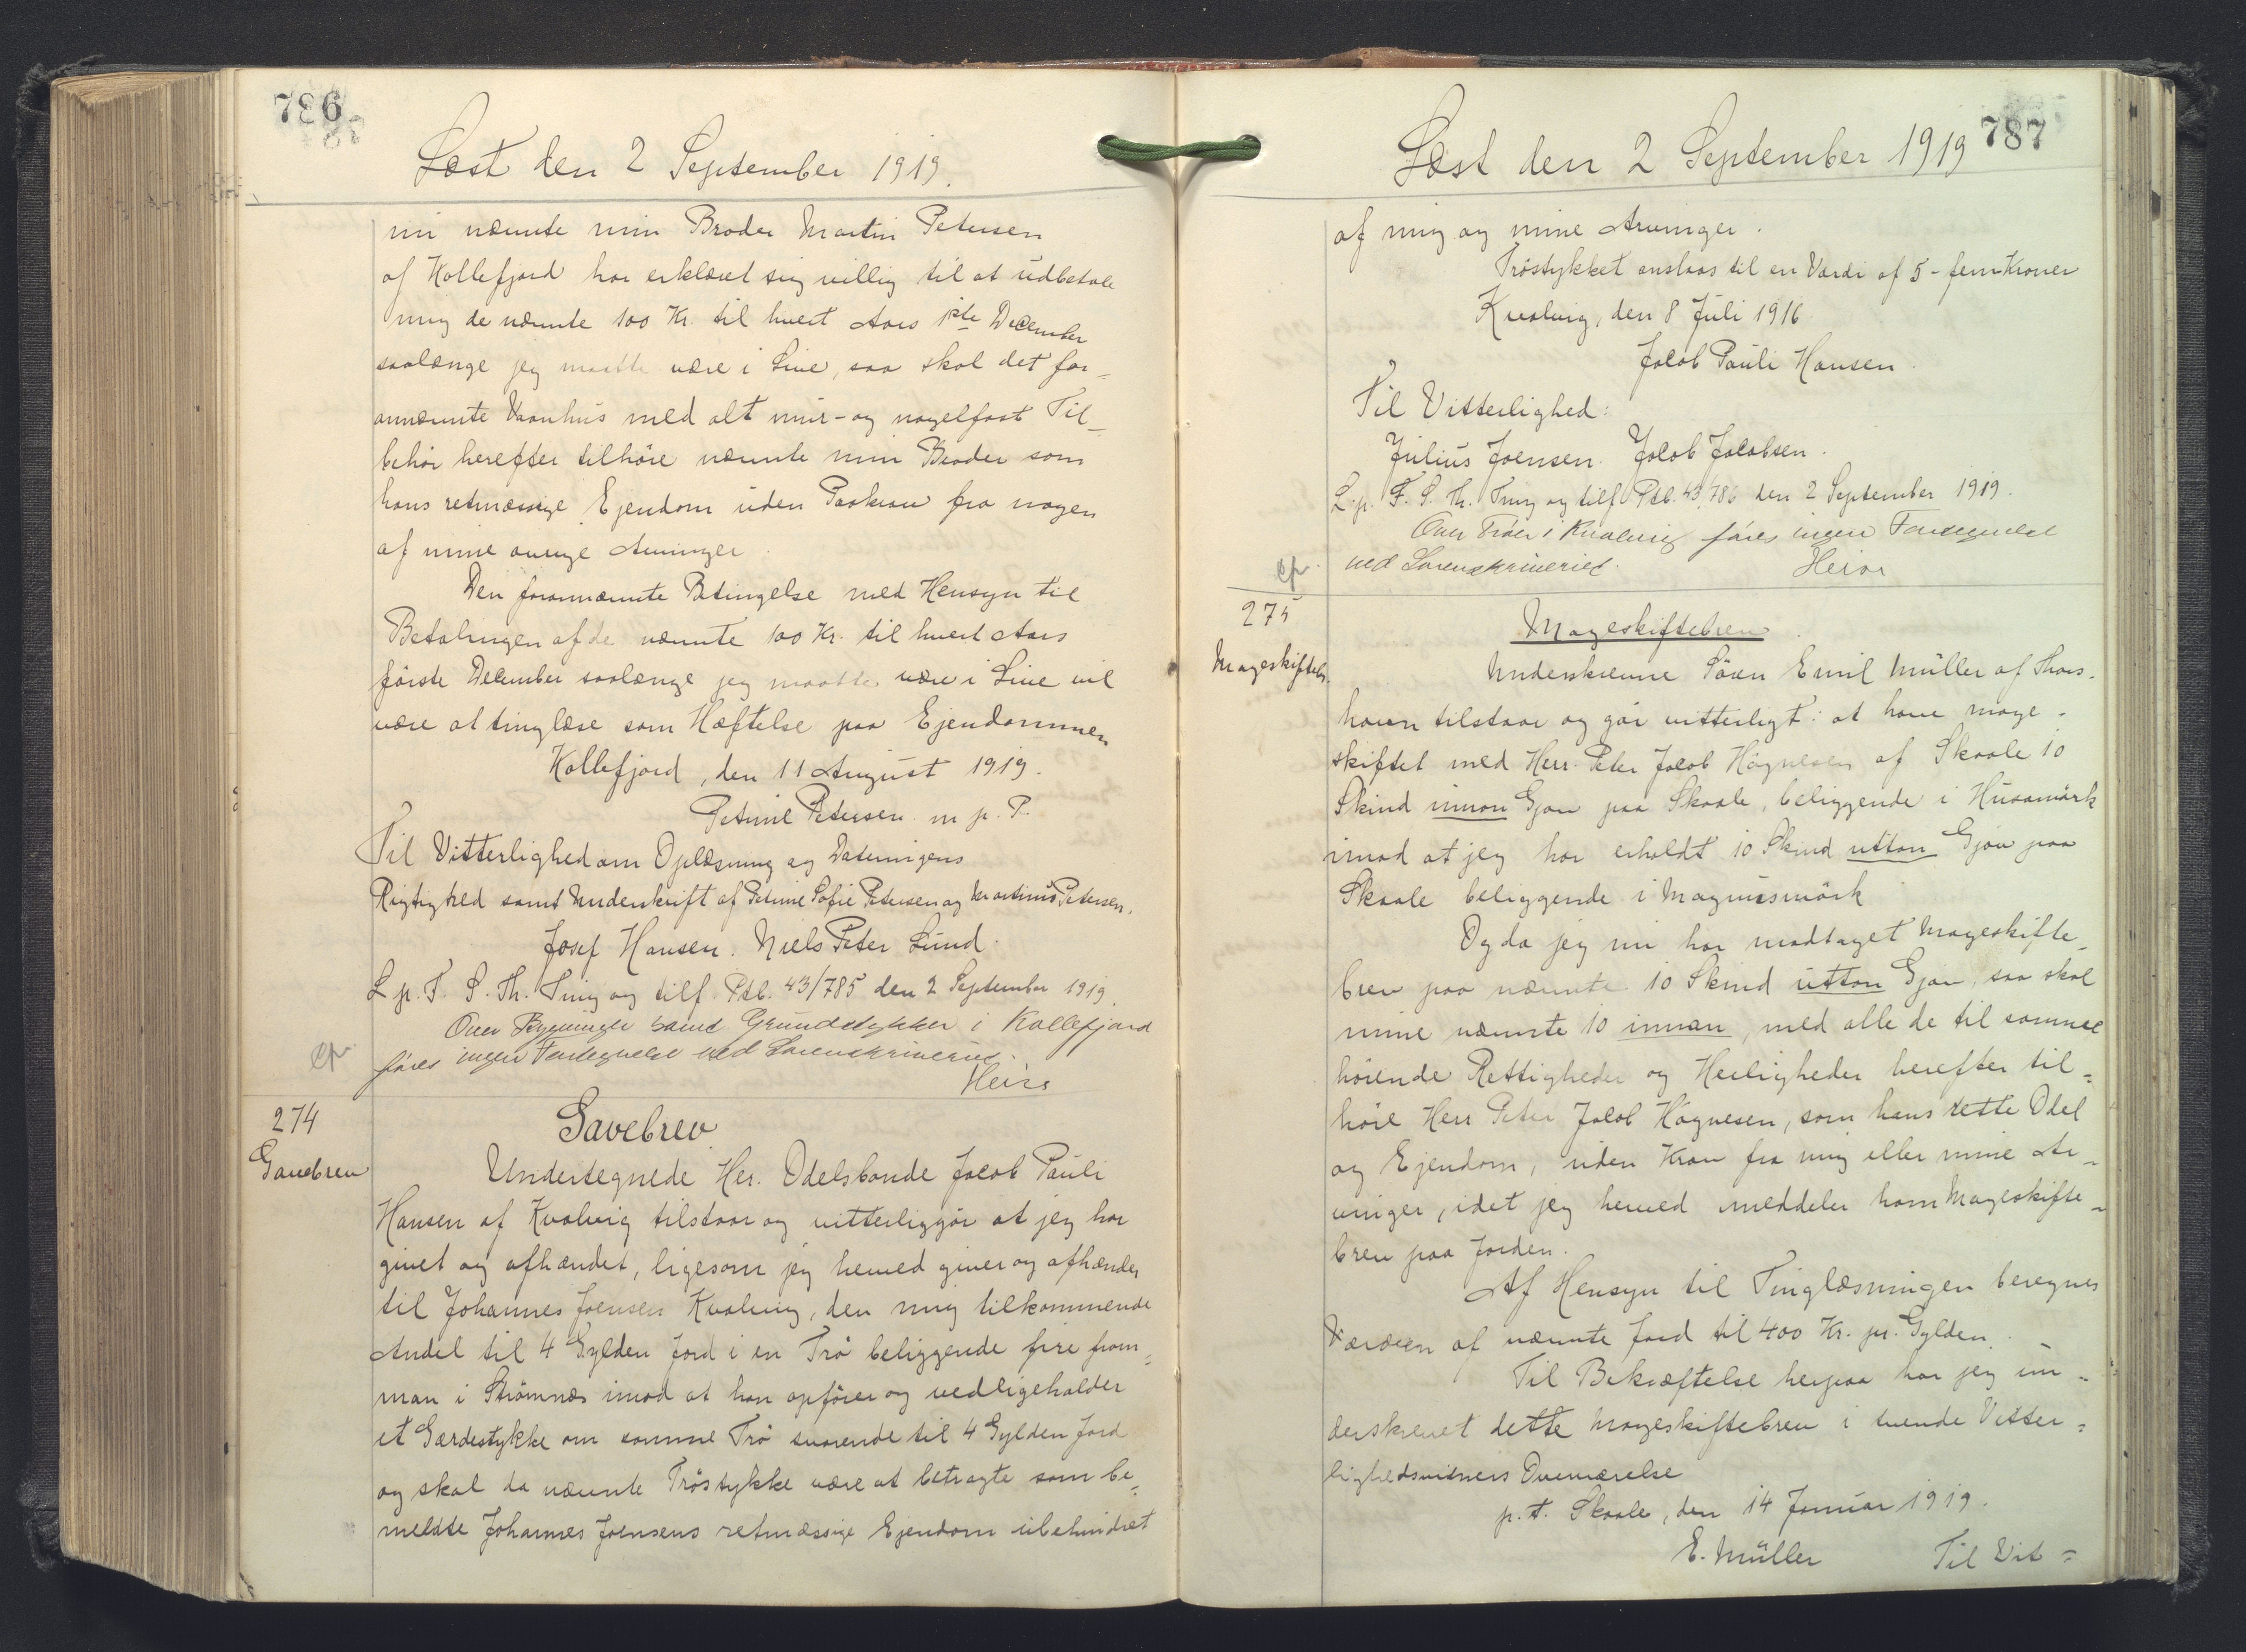 786
Læst den 2 September 1919.
nu nævnte min Broder Martin Petersen
af Kollefjord har erklæret sig villig til at udbetale
mig de nævnte 100 Kr. til hvert Aars 1ste December
saalænge jeg maatte være i Live, saa skal det for-
annævnte Vaanhus med alt mur- og nagelfast Til-
behør herefter tilhøre nævnte min Broder som
hans retmæssige Ejendom uden Paakrav fra nogen
af mine øvrige Arvinger.
Den forannævnte Betingelse med Hensyn til
Betalingen af de nævnte 100 Kr. til hvert Aars
første December saalænge jeg maatte være i Live vil
være at tinglæse som Hæftelse paa Ejendommen
Kollefjord, den 11 August 1919.
Petrine Petersen m p. P.
Til Vitterlighed om Oplæsning og Dateringens
Rigtighed samt Underskrift af Petrine Sofie Petersen og Martinus Petersen.
Josef Hansen. Niels Peter Lund.
L p. F. S. Th. Ting og tilf. Ptb. 43/785 den 2 September 1919.
Over Bygninger samt Grundstykker i Kollefjord
føres ingen Fortegnelse ved Sorenskriveriet.
Heise
cpr.
274
Gavebrev
Gavebrev
Undertegnede Hr. Odelsbonde Jacob Pauli
Hansen af Kvalvig tilstaar og vitterliggør at jeg har
givet og afhændet, ligesom jeg herved giver og afhænder
til Johannes Joensen Kvalvig, den mig tilkommende
Andel til 4 Gylden Jord i en Trø beliggende fyri fram-
man i Strømnæs imod at han opfører og vedligeholder
et Gærdestykke om samme Trø svarende til 4 Gylden Jord
og skal da nævnte Trøstykke være at betragte som be-
meldte Johannes Joensens retmæssige Ejendom ubehindret
787
Læst den 2 September 1919
af mig og mine Arvinger.
Trøstykket anslaas til en Værdi af 5 - fem Kroner
Kvalvig, den 8 Juli 1916.
Jacob Pauli Hansen.
Til Vitterlighed:
Julius Joensen. Jacob Jacobsen.
L. p. F. S. Th. Ting og tilf. Ptb. 43/786 den 2 September 1919.
Over Trøer i Kvalvig føres ingen Fortegnelse
ved Sorenskriveriet.
Heise
cpr.
275
Mageskiftebr.
Mageskiftebrev.
Underskrevne Sören Emil Müller af Thors-
havn tilstaar og gør vitterligt: at have mage-
skiftet med Herr Peter Jacob Høgnesen af Skaale 10
Skind innan Gjov paa Skaale, beliggende i Húsamørk
imod at jeg har erholdt 10 Skind uttan Gjov paa
Skaale beliggende i Magnusmørk
Og da jeg nu har modtaget Mageskifte-
brev paa nævnte 10 Skind uttan Gjov, saa skal
mine nævnte 10 innan, med alle de til samme
hørende Rettigheder og Herligheder herefter til-
høre Herr Peter Jacob Høgnesen, som hans rette Odel
og Ejendom, uden Krav fra mig eller mine Ar-
vinger, idet jeg herved meddeler ham Mageskifte-
brev paa Jorden.
Af Hensyn til Tinglæsningen beregnes
Værdien af nævnte Jord til 400 Kr. pr. Gylden.
Til Bekræftelse herpaa har jeg un-
derskrevet dette Mageskiftebrev i tvende Vitter-
lighedsvidners Overværelse
p. t. Skaale, den 14 Januar 1919.
E. Müller
Til Vit-